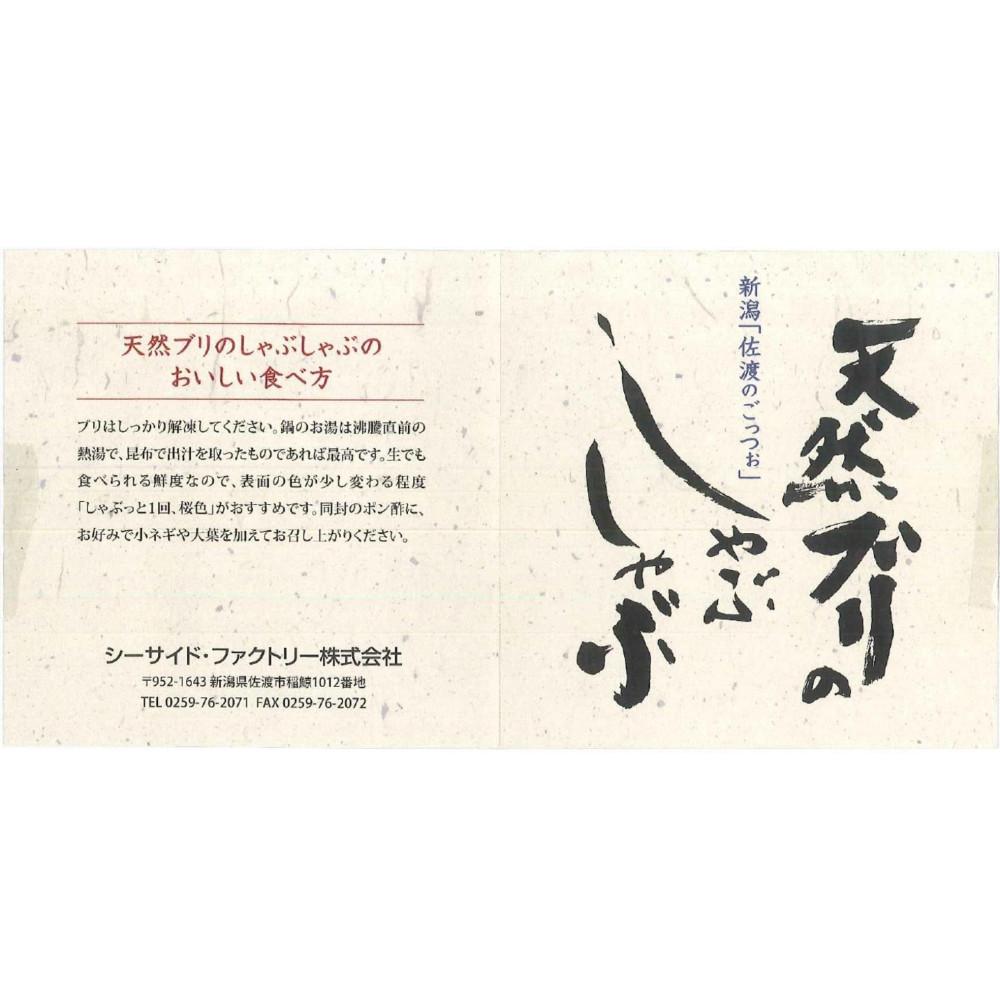 天然ブリのしゃぶしゃぶの
おいしい食べ方
ブリはしっかり解凍してください。鍋のお湯は沸騰直前の
熱湯で、昆布で出汁を取ったものであれば最高です。生でも
食べられる鮮度なので、表面の色が少し変わる程度
「しゃぶっと1回、桜色」がおすすめです。同封のポン酢に、
お好みで小ネギや大葉を加えてお召し上がりください。
シーサイド・ファクトリー株式会社
〒952-1643 新潟県佐渡市稲鯨1012番地
TEL 0259-76-2071 FAX 0259-76-2072
天然ブリの
しゃぶ
しゃぶ
新潟「佐渡のごっつぉ」